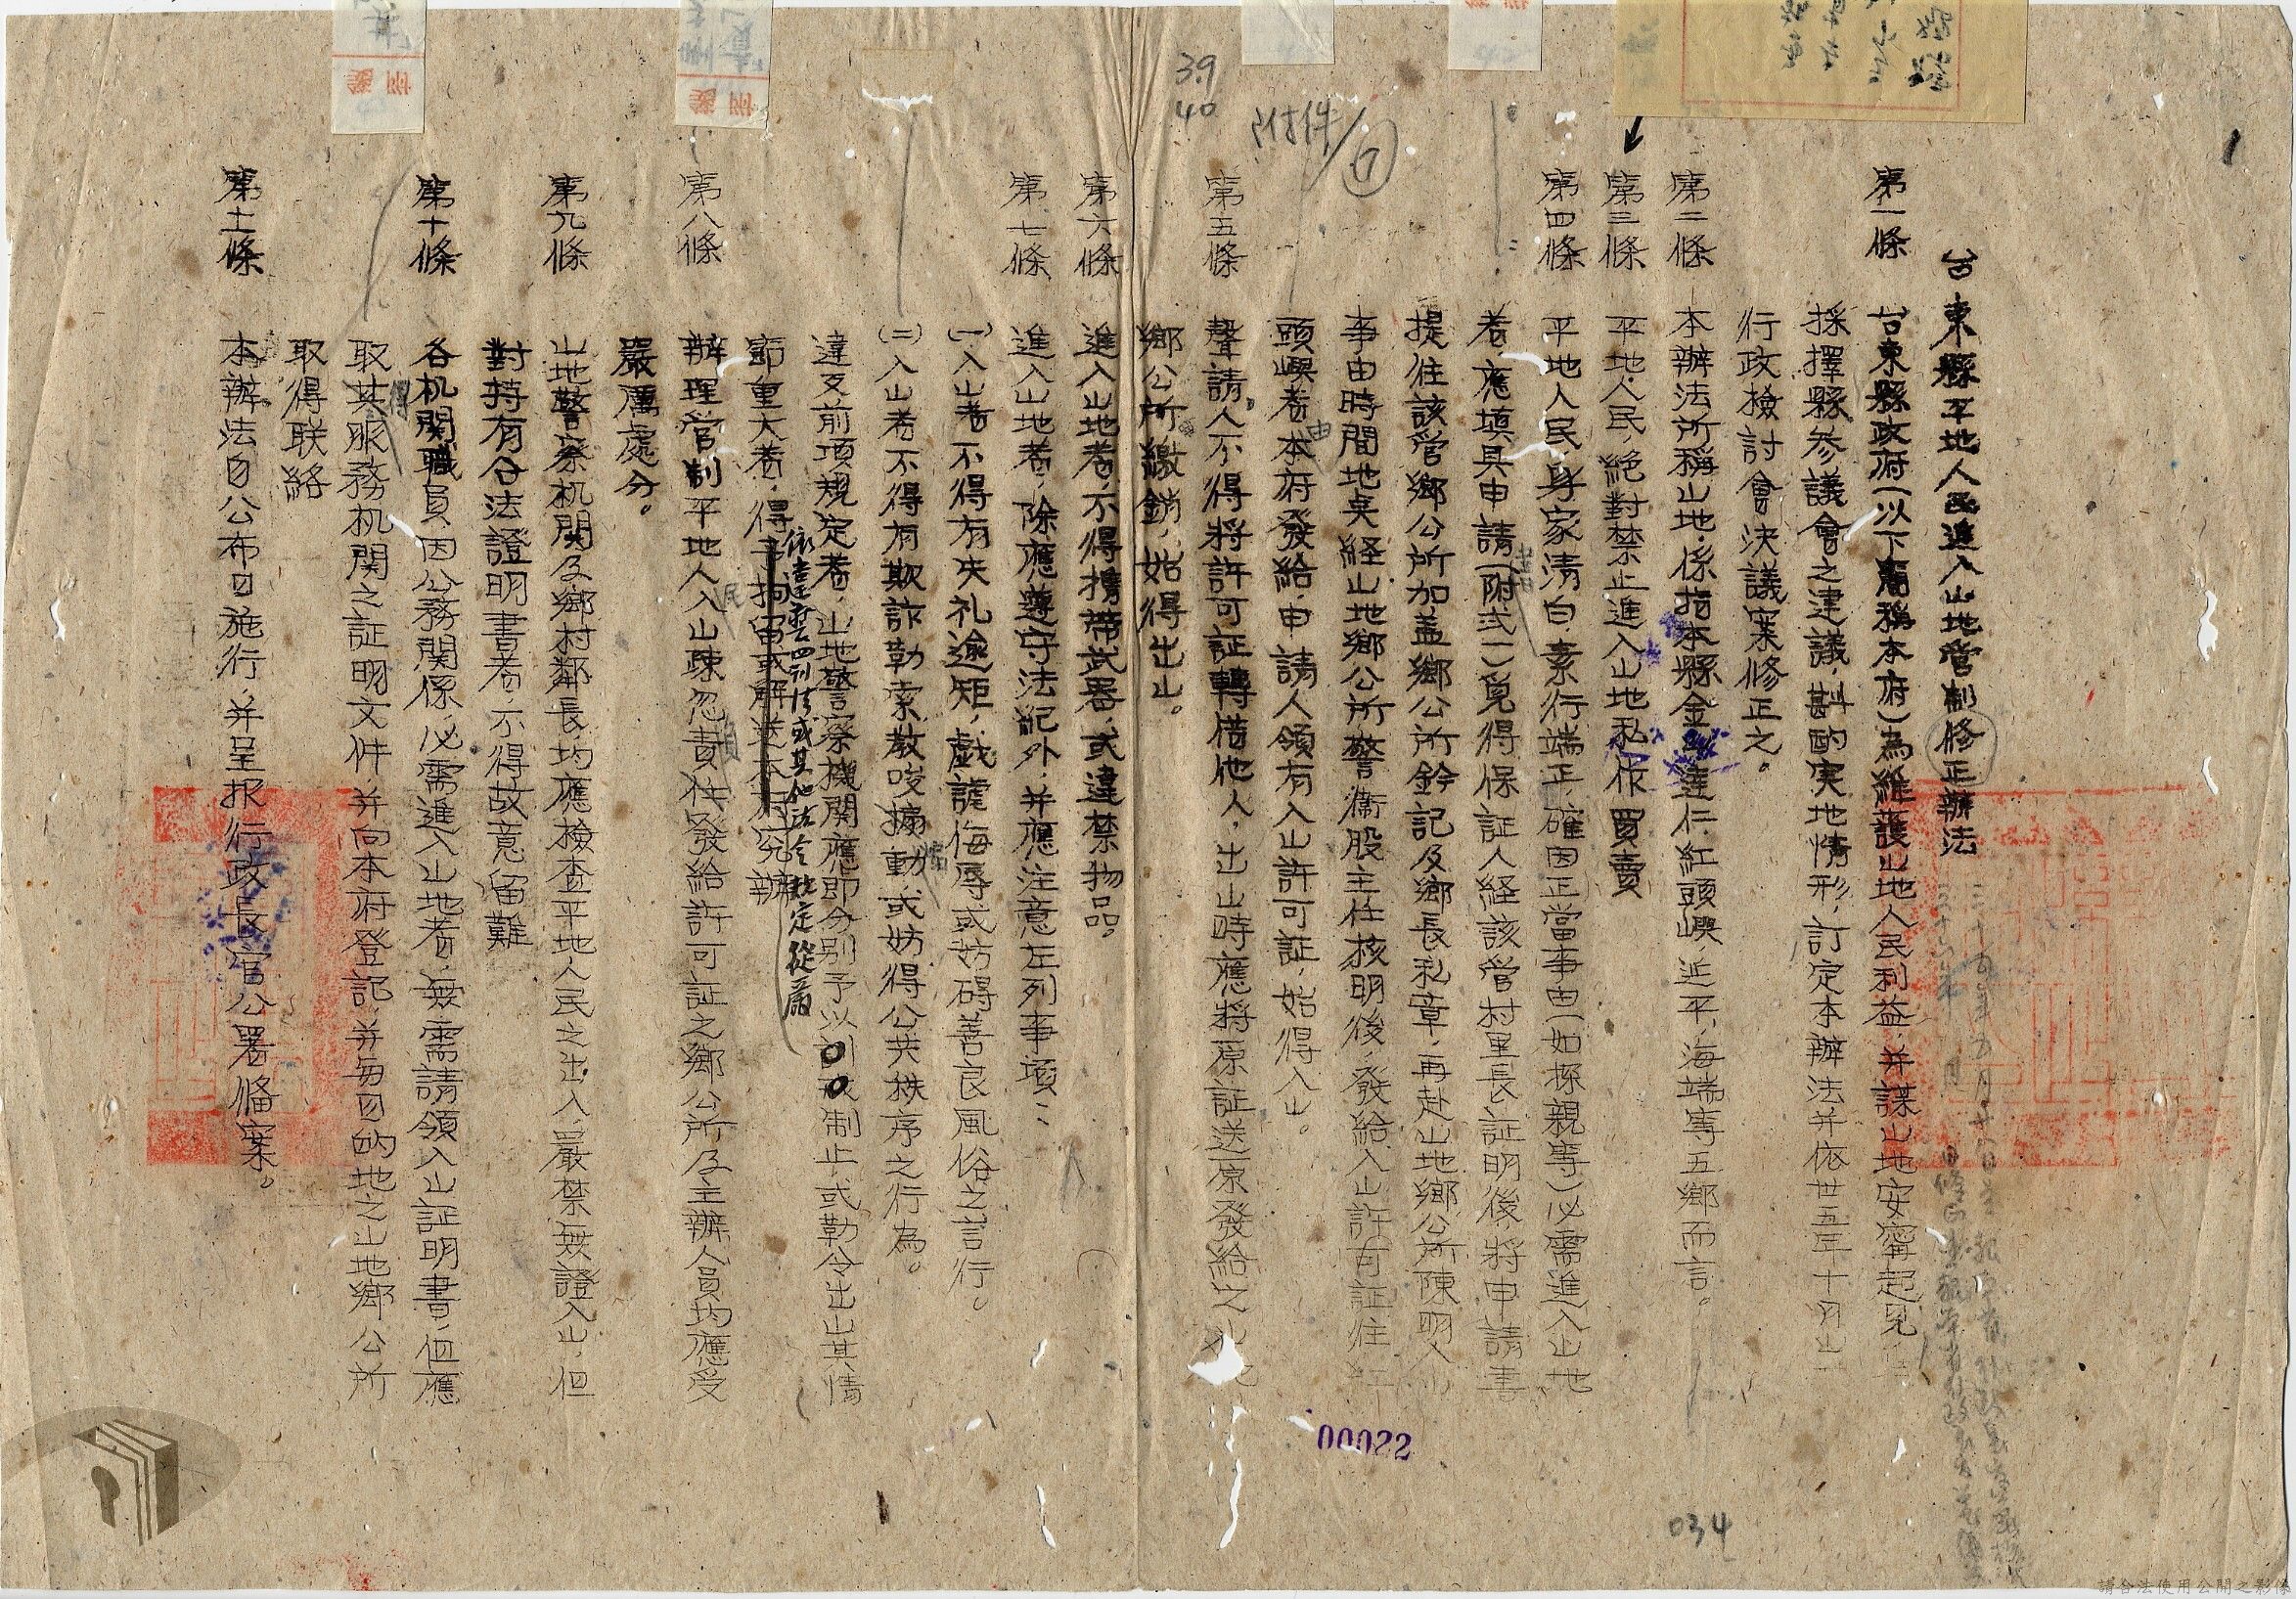 39
40
附件/①
1
台東縣平地人民進入山地管制修正辦法
第一條 台東縣政府(以下簡稱本府)為維護山地人民利益,并謀山地安寧起見
採擇縣參議會之建議,斟酌实地情形,訂定本辦法并依卅五年十月山
行政檢討會決議案修正之。
第二條 本辦法所稱山地,係指本縣金 達仁 紅頭嶼、延平,海端等五鄉而言。
第三條 平地人民,絕對禁止進入山地私作買賣
第四條 平地人民,身家清白素行端正,確因正當事由(如探親等)必需進入山地
者應填具申請書(附式一)覓得保証人経該管村里長証明後,將申請書
提往該管鄉公所加盖鄉公所鈐記及鄉長私章,再赴山地鄉公所陳明入山
事由時間地点経山地鄉公所警衞股主任核明後,發給入山許可証往紅
頭嶼者由本府發給,申請人領有入山許可証,始得入山。
第五條 聲請人不得將許可証轉借他人,出山時應將原証送原發給之
鄉公所繳銷,始得出山。
第六條 進入山地者,不得携帶武器,或違禁物品。
第七條 進入山地者,除應遵守法紀外,并應注意左列事項:
(一)入山者不得有失礼逾矩,戲謔侮辱或妨碍善良風俗之言行。
(二)入山者不得有欺詐勒索教唆煽動或妨得公共秩序之行為。
違反前項規定者,山地警察機関應即分别予以 制止,或勒令出山其情
節重大者,得予拘留或解送本府究辦
依違警罰法或其他法令規定從嚴
第八條 辦理管制平地人民入山疎忽責任發給許可証之鄉公所及主辦人員均應受
嚴厲處分。
第九條 山地警察机関及鄉村鄰長,均應檢查平地人民之出入,嚴禁無證入山,但
對持有合法證明書者,不得故意留難
第十條 各机関職員,因公務関係,必需進入山地者,無需請領入山証明書,但應
取得其服務机関之証明文件,并向本府登記,并每目的地之山地鄉公所
取得联絡
第十一條 本辦法自公布日施行,并呈报行政長官公署備案。
00022
034
請合法使用公開之影像